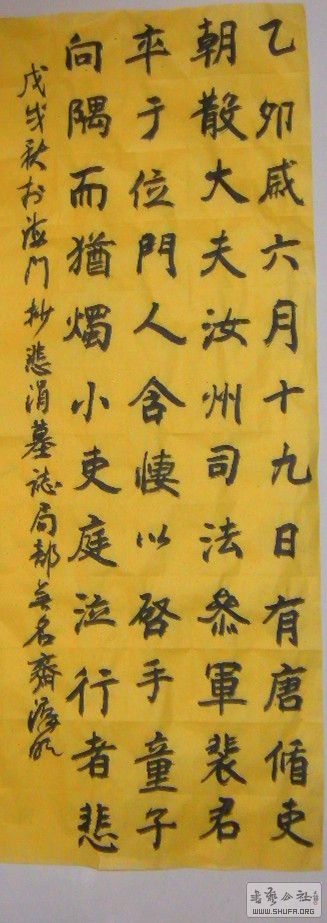 乙卯歲六月十九日有唐循吏
朝散大夫汝州司法叅軍裴君
卒于位門人含悽以啓手童子
向隅而猶燭小吏庭泣行者悲
戊戌秋於海門抄悲涓墓誌局部無名齋
WWW.SHUFA.ORG